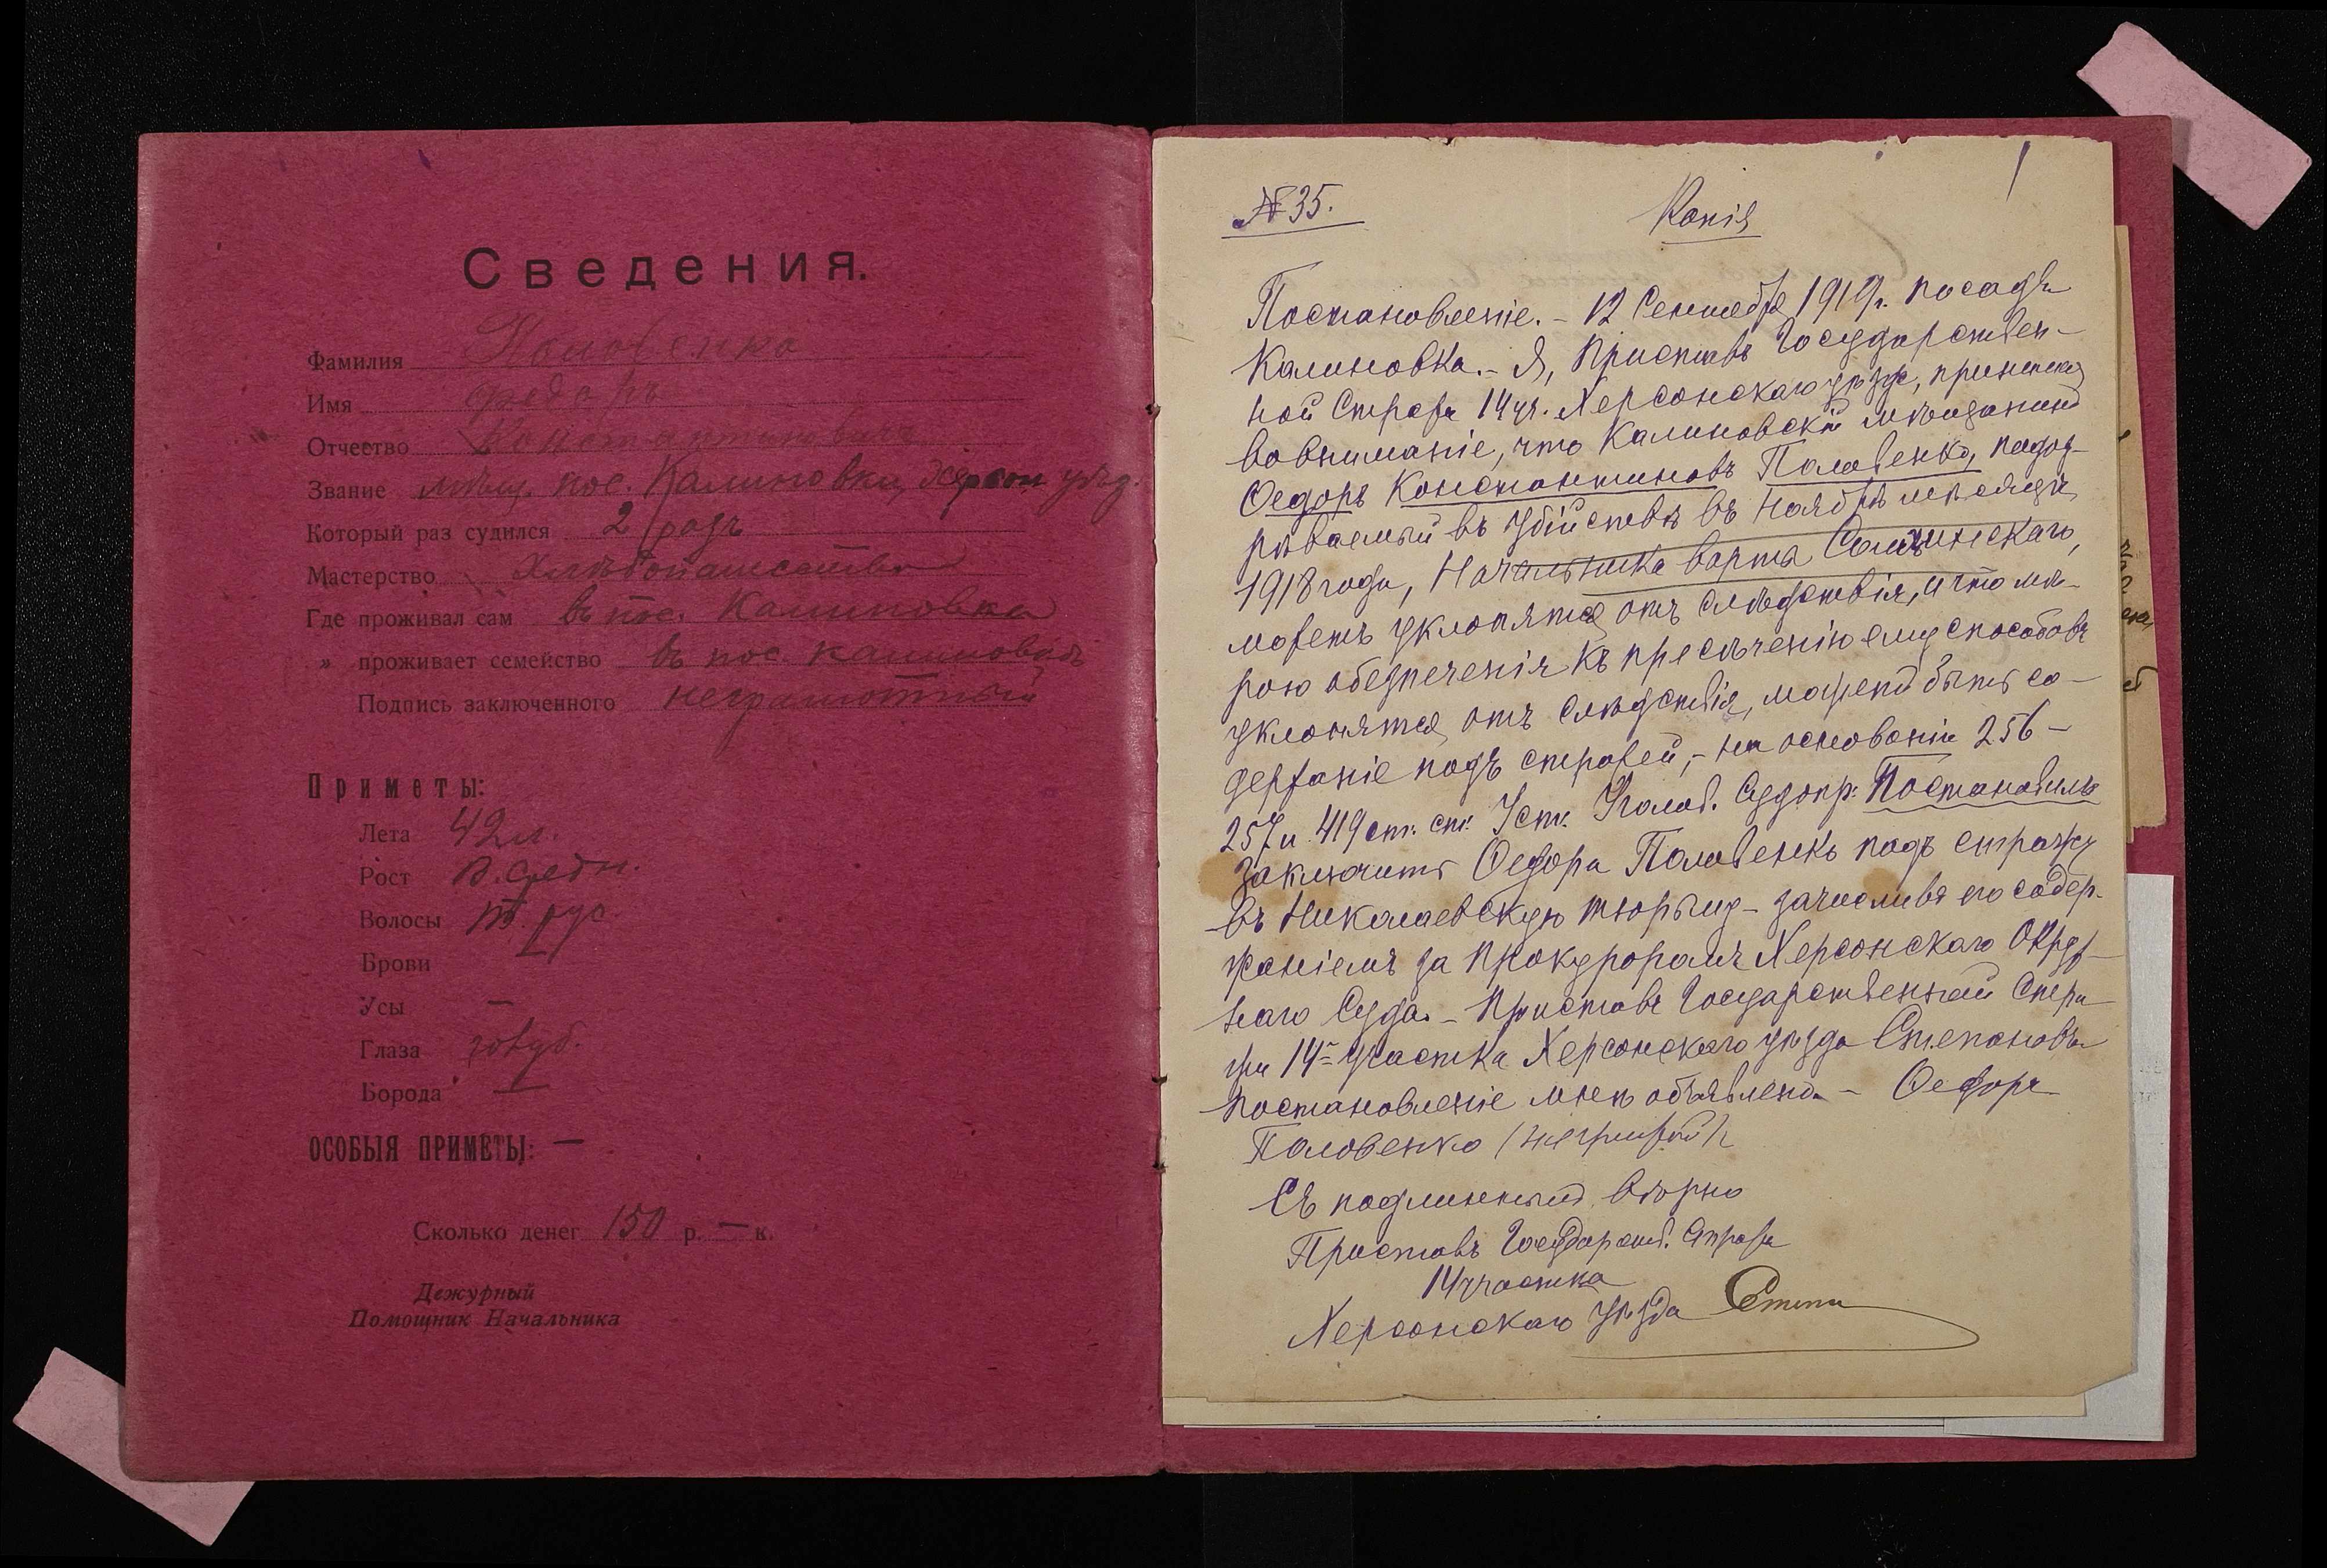 Сведения.
Фамилия Половенко
Имя Федоръ
Отчество Константиновичъ
Звание мѣщ. пос. Калиновки Херсон уѣзд.
Который раз судился 2 разъ
Мастерство Хлѣбопашество
Где проживал сам въ пос. Калиновка
„ проживает семейство въ пос. Калиновкѣ
Подпись заключенного неграмотный
Приметы:
Лета 42 л.
Рост в. средн.
Волосы т. рус.
Брови —
Усы —
Глаза голуб.
Борода —
ОСОБЫЯ ПРИМЕТЫ: —
Сколько денег 150 р. — к.
Дежурный
Помощник Начальника
№ 35.
Копія
1
Постановленіе. – 12 Сентября 1919 г. посадъ
Калиновка. – Я, Приставъ Государствен-
ной Стражи 14 уч. Херсонскаго уѣзда, принимая
во вниманіе, что Калиновскій мѣщанинъ
Ѳедоръ Константиновъ Половенко, подоз-
рѣваемый въ убійствѣ въ Ноябрѣ мѣсяцѣ
1918 года, Начальника варты
можетъ уклонятся отъ слѣдствія, и что мѣ-
рою обезпеченія къ пресѣченію ему способовъ
уклонятся отъ слѣдствія, можетъ быть со-
держаніе подъ стражей, – на основаніи 256 –
257 и 419 ст. ст. Уст. Уголов. Судопр: Постановилъ
заключить Ѳедора Половенкѣ подъ стражу
въ Николаевскую тюрьму – зачисливъ его содер-
жаніемъ за Прокуроромъ Херсонскаго Окруж-
наго Суда. – Приставъ Государственной Стра-
жи 14го участка Херсонскаго уѣзда Степановъ
Постановленіе мнѣ объявлено – Ѳедоръ
Половенко
Съ подлиннымъ вѣрно
Приставъ Государств. Стражи
14 участка
Херсонскаго уѣзда